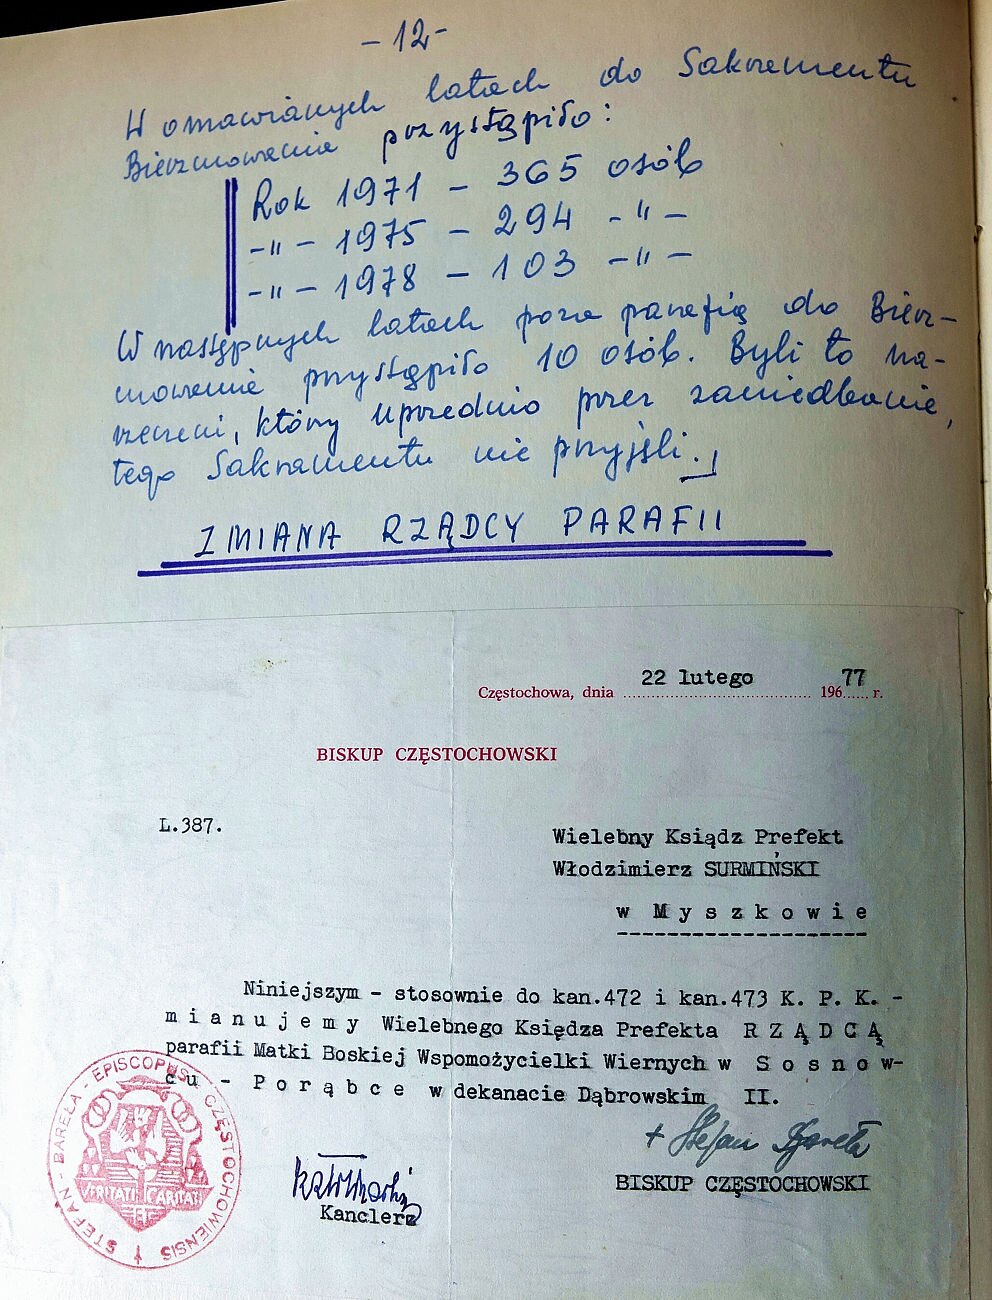 - 12 -
W omawianych latach do Sakramentu
Bierzmowania przystąpiło:
Rok 1971 - 365 osób
-"- 1975 - 294 -"-
-"- 1978 - 103 -"-
W następnych latach poza parafią do Bierz-
mowania przystąpiło 10 osób. Byli to na-
rzeczeni, który uprzednio przez zaniedbanie,
tego Sakramentu nie przyjęli.
ZMIANA RZĄDCY PARAFII
Częstochowa, dnia 22 lutego 19677 r.
BISKUP CZĘSTOCHOWSKI
L.387.
Wielebny Ksiądz Prefekt
Włodzimierz SURMIŃSKI
w Myszkowie
Niniejszym - stosownie do kan.472 i kan.473 K. P. K. -
m i a n u j e m y Wielebnego Księdza Prefekta R Z Ą D C Ą
parafii Matki Boskiej Wspomożycielki Wiernych w S o s n o w-
c u - P o r ą b c e w dekanacie Dąbrowskim II.
+ Stefan Bareła
BISKUP CZĘSTOCHOWSKI
Kanclerz
STEFAN - BAREŁA - EPISCOPUS - CZĘSTOCHOWIENSIS
VERITATI CARITATI